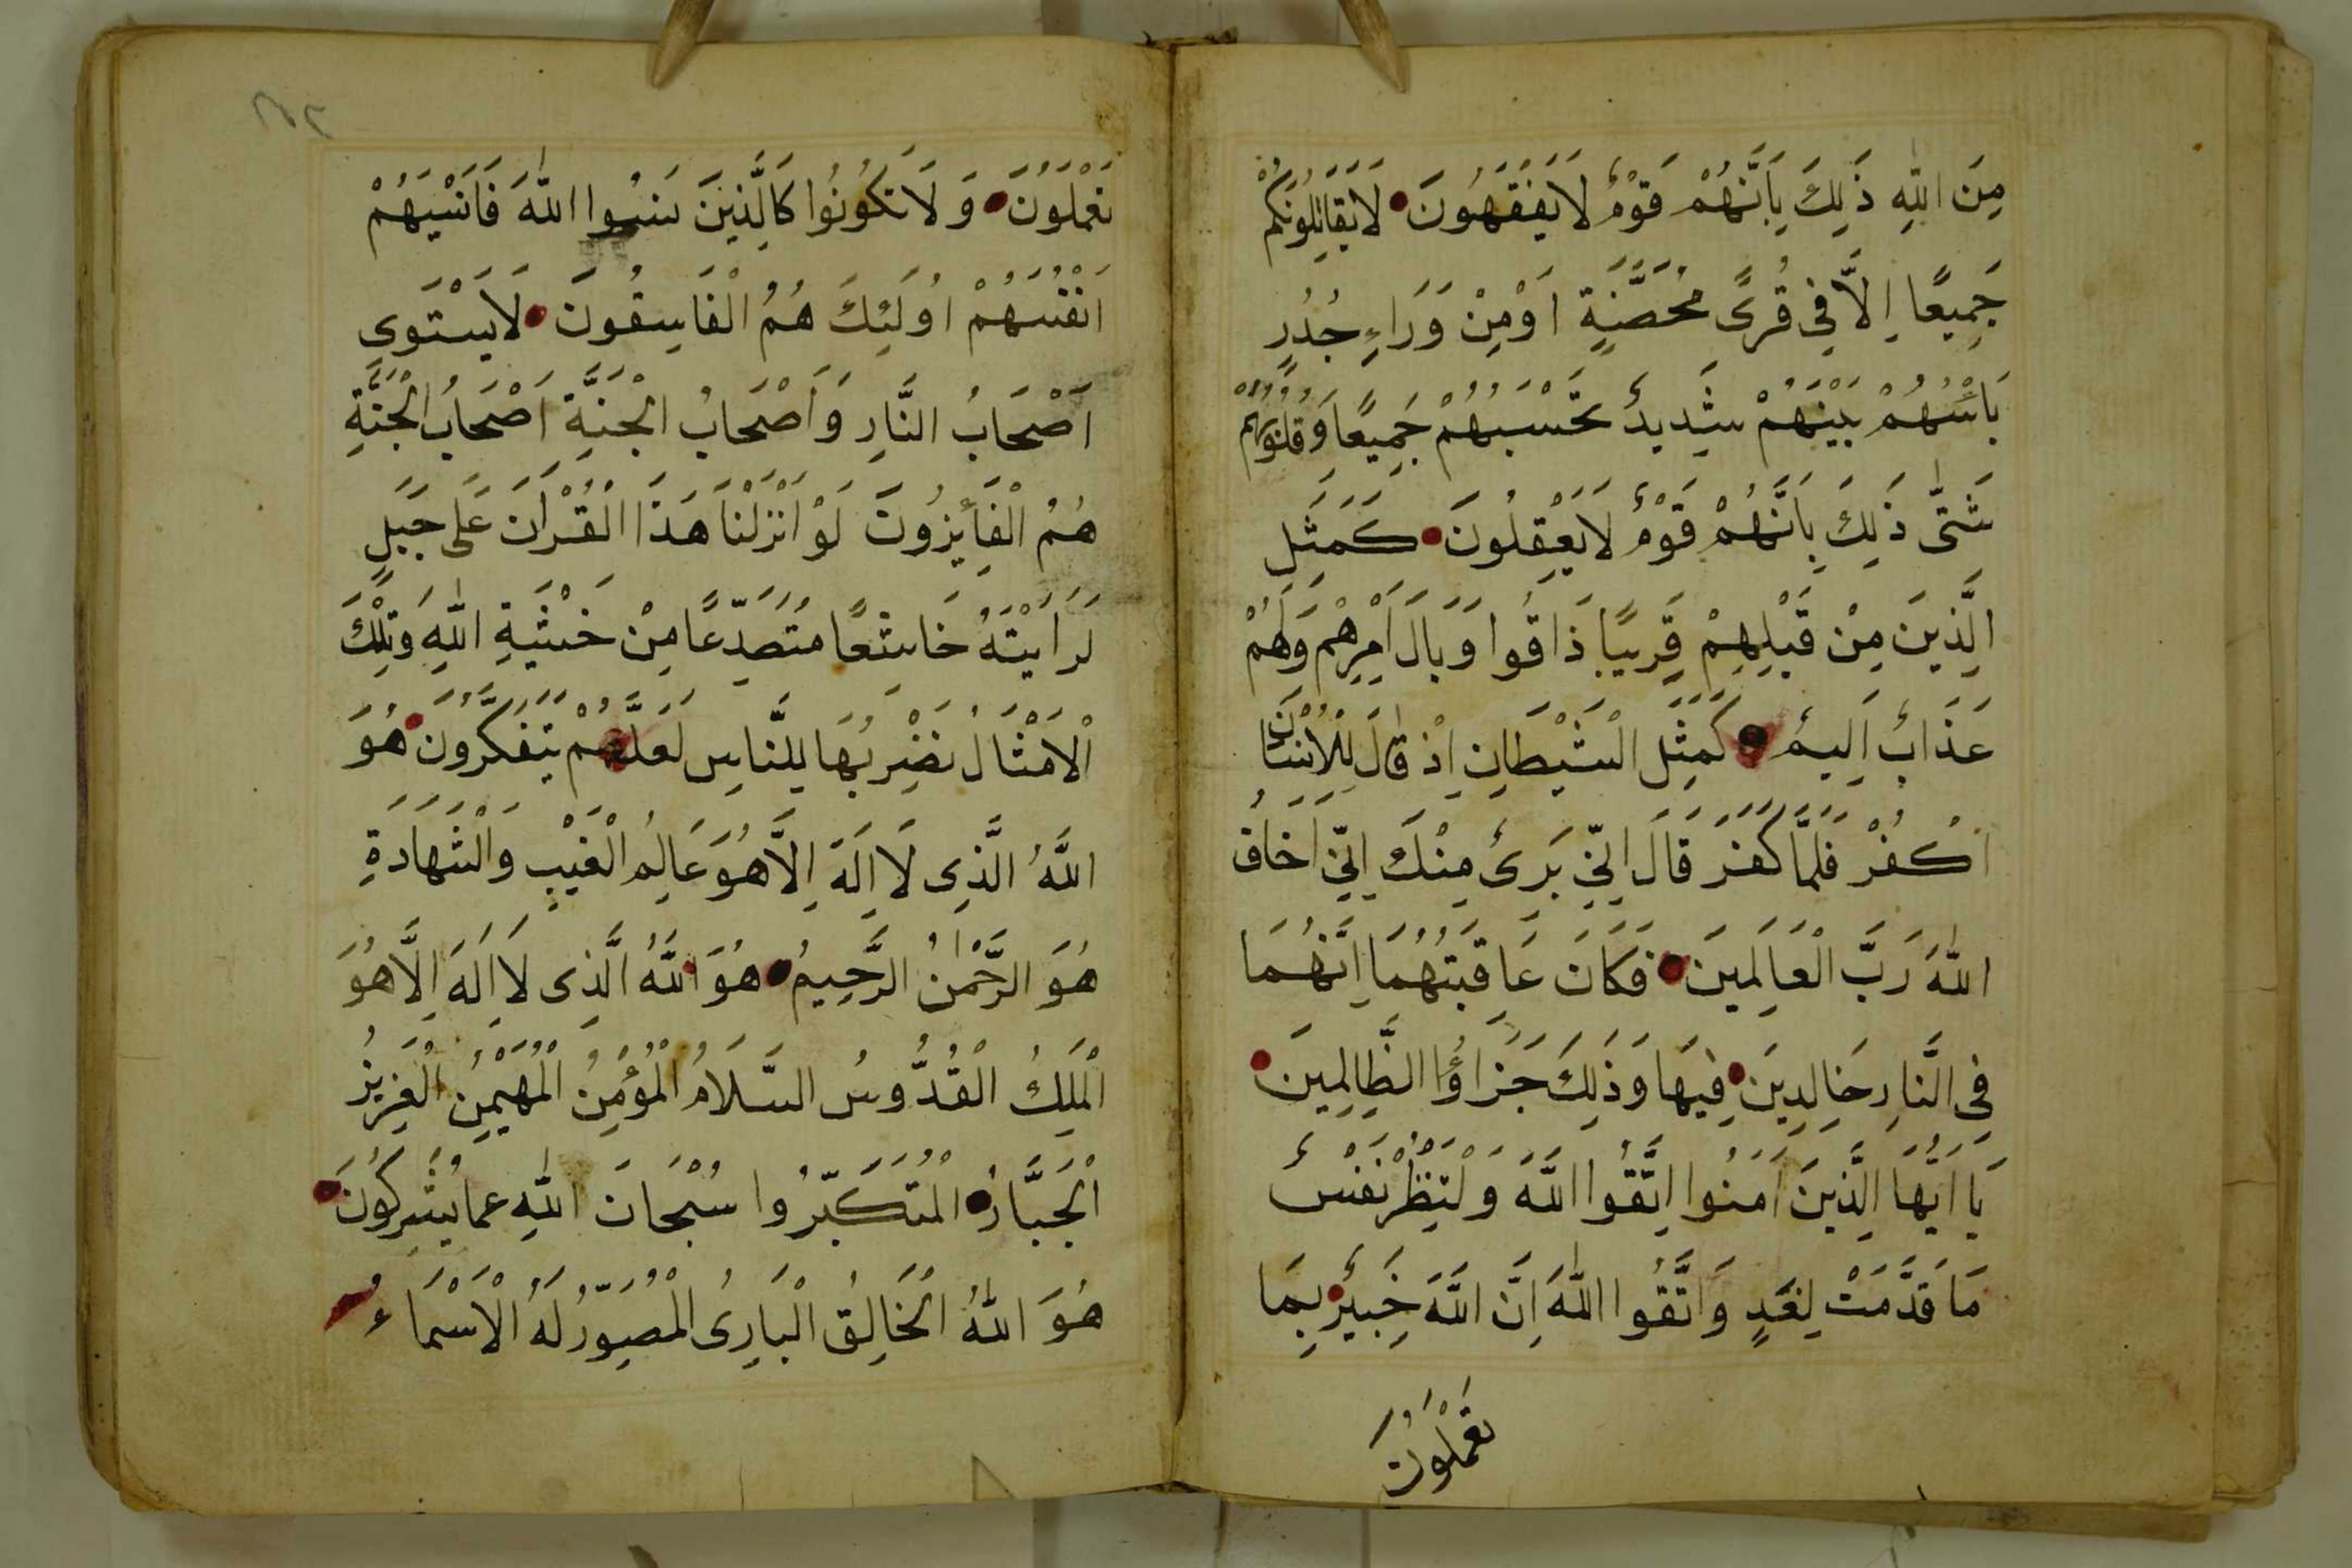 مِنَ اللّٰهِ ذَلِكَ بِاَنَّهُمْ قَوْمٌ لَا يَفْقَهُونَ لَا يُقَاتِلُونَكُمْ
جَمِيعًا اِلَّا فِي قُرًى مُحَصَّنَةٍ اَوْ مِنْ وَرَاءِ جُدُرٍ
بَاْسُهُمْ بَيْنَهُمْ شَدِيدٌ تَحْسَبُهُمْ جَمِيعًا وَقُلُوبُهُمْ
شَتّٰى ذَلِكَ بِاَنَّهُمْ قَوْمٌ لَا يَعْقِلُونَ كَمَثَلِ
الَّذِينَ مِنْ قَبْلِهِمْ قَرِيبًا ذَاقُوا وَبَالَ اَمْرِهِمْ وَلَهُمْ
عَذَابٌ اَلِيمٌ كَمَثَلِ الشَّيْطَانِ اِذْ قَالَ لِلْاِنْسَانِ
اكْفُرْ فَلَمَّا كَفَرَ قَالَ اِنِّي بَرِىءٌ مِنْكَ اِنِّي اَخَافُ
اللّٰهَ رَبَّ الْعَالَمِينَ فَكَانَ عَاقِبَتَهُمَا اِنَّهُمَا
فِى النَّارِ خَالِدِينَ فِيهَا وَذَلِكَ جَزَاؤُا الظَّالِمِينَ
يَا اَيُّهَا الَّذِينَ اَمَنُوا اتَّقُوا اللَّهَ وَلْتَنْظُرْ نَفْسٌ
مَا قَدَّمَتْ لِغَدٍ وَاتَّقُوا اللّٰهَ اِنَّ اللَّهَ خَبِيرٌ بِمَا
تَعْمَلُونَ
تَعْمَلُونَ وَلَا تَكُونُوا كَالَّذِينَ نَسُوا اللّٰهَ فَاَنْسٰيهُمْ
اَنْفُسَهُمْ اُولَئِكَ هُمُ الْفَاسِقُونَ لَا يَسْتَوِى
اَصْحَابُ النَّارِ وَاَصْحَابُ الْجَنَّةِ اَصْحَابُ الْجَنَّةِ
هُمُ الْفَائِزُونَ لَوْ اَنْزَلْنَا هَذَا الْقُرْاَنَ عَلَى جَبَلٍ
لَرَاَيْتَهُ خَاشِعًا مُتَصَدِّعًا مِنْ خَشْيَةِ اللّٰهِ وَتِلْكَ
الْاَمْثَالُ نَضْرِبُهَا لِلنَّاسِ لَعَلَّهُمْ يَتَفَكَّرُونَ هُوَ
اللَّهُ الَّذِى لَا اِلَهَ اِلَّا هُوَ عَالِمُ الْغَيْبِ وَالشَّهَادَةِ
هُوَ الرَّحْمٰنُ الرَّحِيمُ هُوَ اللَّهُ الَّذِى لَا اِلَهَ اِلَّا هُوَ
الْمَلِكُ الْقُدُّوسُ السَّلَامُ الْمُؤْمِنُ الْمُهَيْمِنُ الْعَزِيزُ
الْجَبَّارُ الْمُتَكَبِّرُوا سُبْحَانَ اللّٰهِ عَمَا يُشْرِكُونَ
هُوَ اللّٰهُ الْخَالِقُ الْبَارِىُ الْمُصَوِّرُ لَهُ الْاَسْمَاءُ